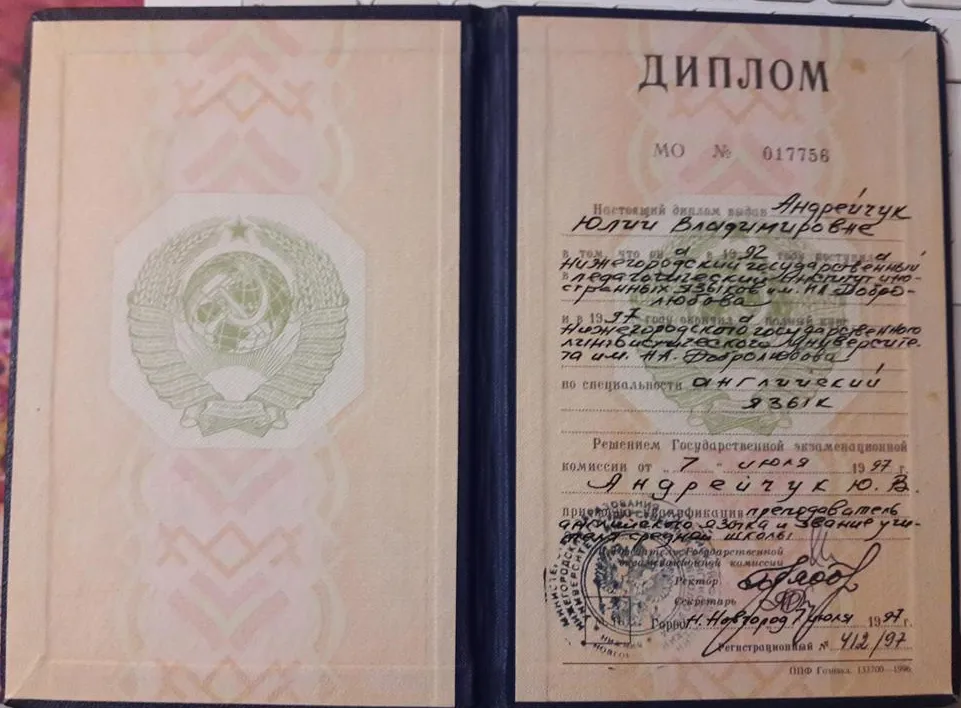 ДИПЛОМ
МО № 017756
Настоящий диплом выдан Андрейчук
Юлии Владимировне
в том, что он а в 1992 году поступил а
в Нижегородский государственный
педагогический институт ино-
странных языков им. НА Добро-
любова
и в 1997 году окончил а полный курс
Нижегородского государственного
лингвистического университе-
та им. НА. Добролюбова
по специальности английский
язык
Решением Государственной экзаменационной
комиссии от „7" июля 1997 г.
Андрейчук Ю. В.
присвоена квалификация преподаватель
английского языка и звание учи-
теля средней школы
Председатель Государственной
экзаменационной комиссии
Ректор
Секретарь
Город Н. Новгород 7 июля 1997 г.
Регистрационный № 412/97
ППФ Гознака. 1996.